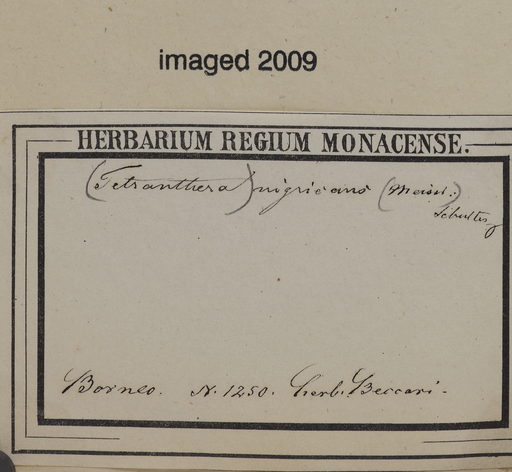 imaged 2009
HERBARIUM REGIUM MONACENSE.
(Tetranthera) nigricans (Meisn.)
Borneo. N. 1250. herb. Beccari.